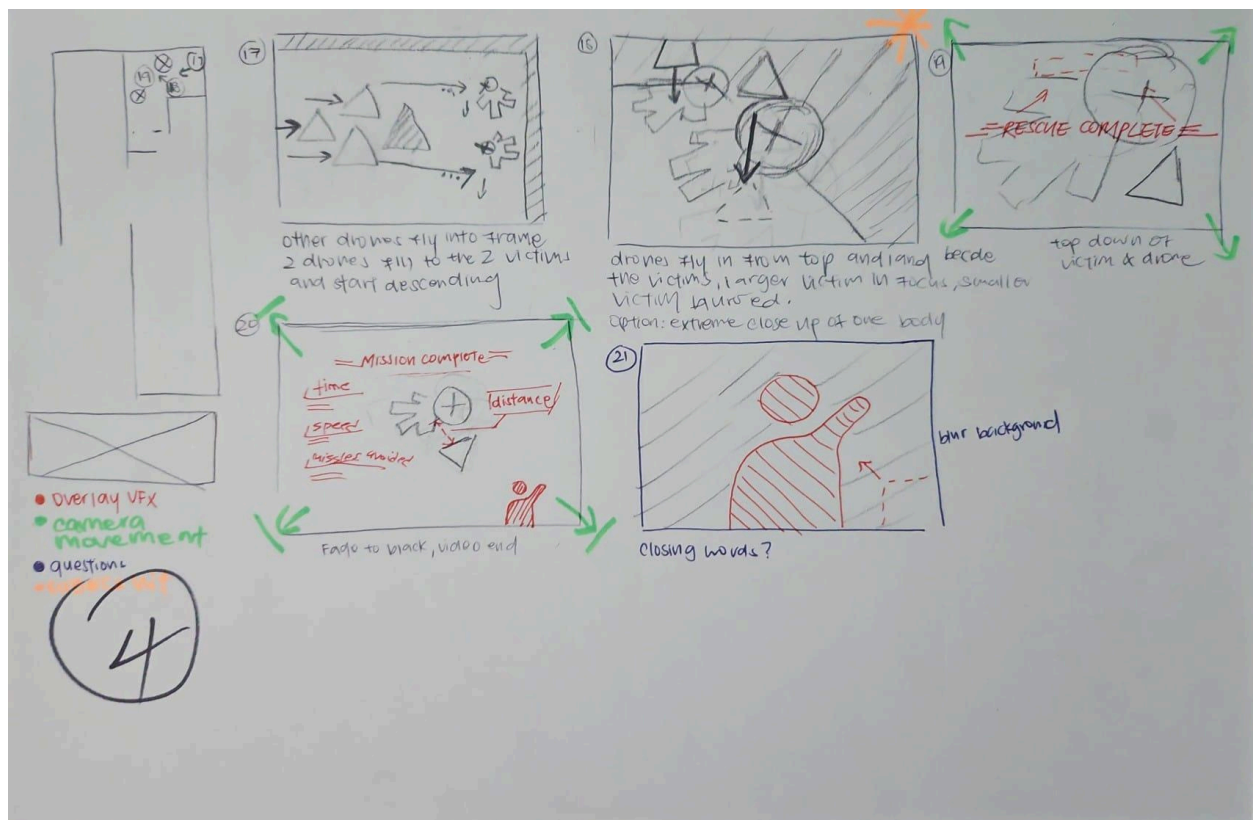 19
18
17
17
other drones fly into frame
2 drones fly to the 2 victims
and start descending
18
drones fly in from top and land beside
the victims, larger victim in focus, smaller
victim blurred.
option: extreme close up of one body
19
RESCUE COMPLETE
top down of
victim & drone
20
MISSION COMPLETE
time
speed
missles avoided
distance
Fade to black, video end
21
blur background
closing words?
overlay VFX
camera
movement
questions
4